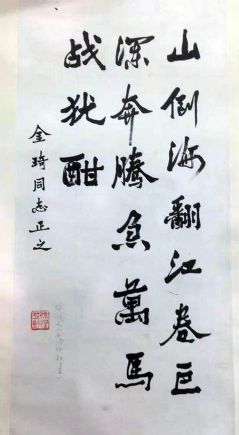 山倒海翻江卷巨
深奔腾急萬馬
战犹酣
金琦同志正之